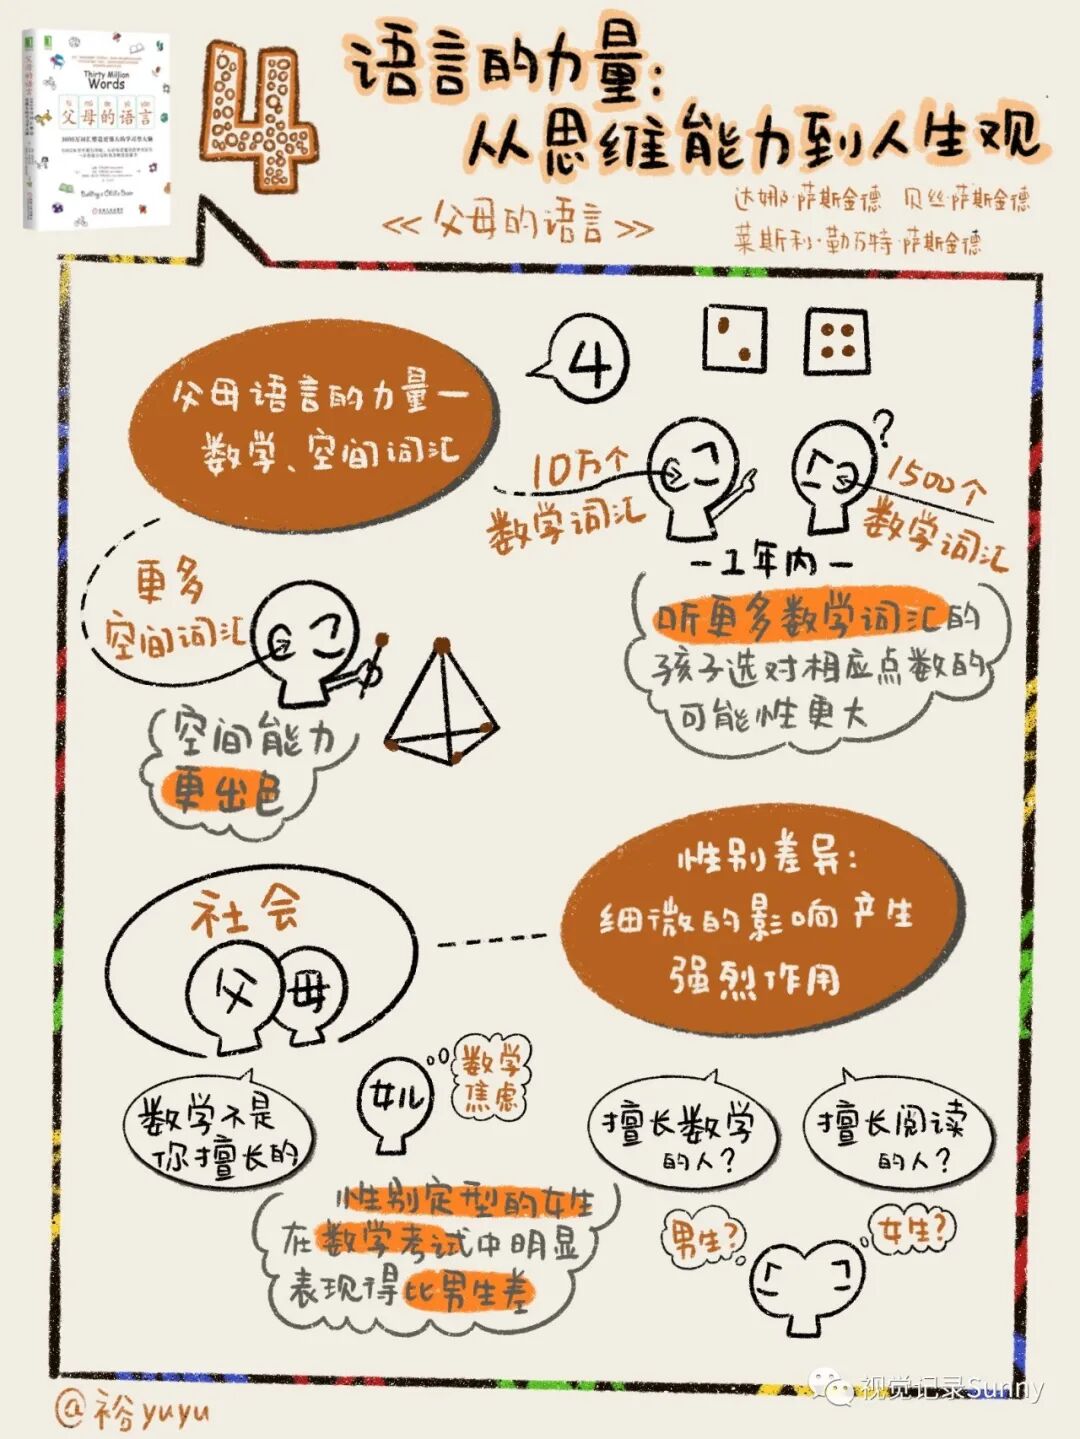 父母的语言
Thirty Million
Words
父母的语言
3000万词汇塑造更强大的学习型大脑
Building a Child's Brain
4
语言的力量：
从思维能力到人生观
《父母的语言》
达娜·萨斯金德 贝丝·萨斯金德
莱斯利·勒万特·萨斯金德
父母语言的力量—
数学、空间词汇
4
10万个
数学词汇
?
1500个
数学词汇
—1年内—
听更多数学词汇的
孩子选对相应点数的
可能性更大
更多
空间词汇
空间能力
更出色
性别差异：
细微的影响产生
强烈作用
社会
父 母
数学不是
你擅长的
女儿
数学
焦虑
性别定型的女生
在数学考试中明显
表现得比男生差
擅长数学
的人？
擅长阅读
的人？
男生？
女生？
@裕yuyu
视觉记录Sunny